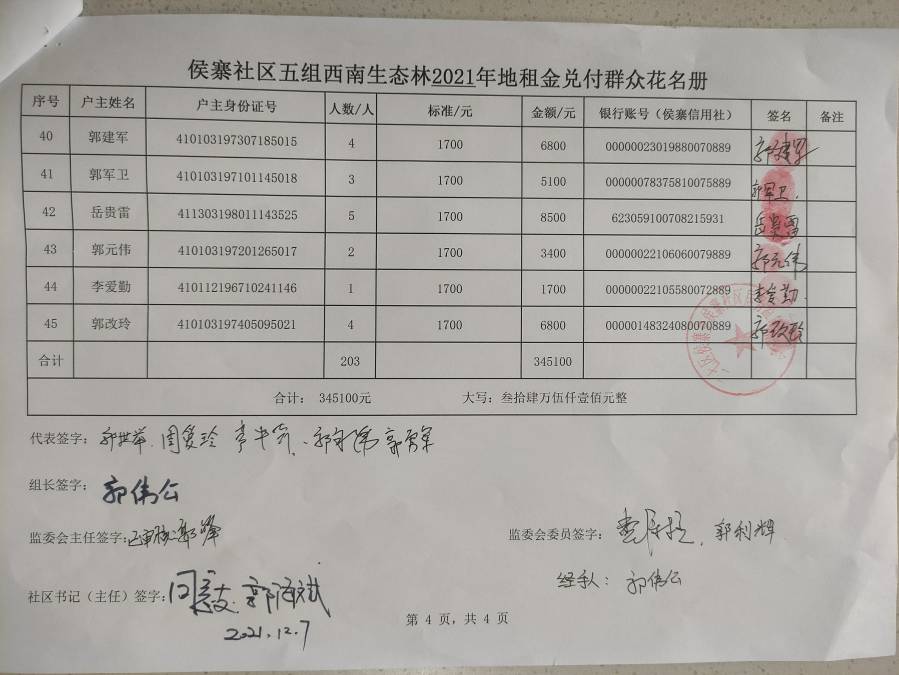 侯寨社区五组西南生态林2021年地租金兑付群众花名册
序号 户主姓名 户主身份证号 人数/人 标准/元 金额/元 银行账号（侯寨信用社） 签名 备注
40 郭建军 410103197307185015 4 1700 6800 00000023019880070889 郭建军
41 郭军卫 410103197101145018 3 1700 5100 00000078375810075889 郭军卫
42 岳贵雷 411303198011143525 5 1700 8500 623059100708215931 岳贵雷
43 郭元伟 410103197201265017 2 1700 3400 00000022106060079889 郭元伟
44 李爱勤 410112196710241146 1 1700 1700 00000022105580072889 李爱勤
45 郭改玲 410103197405095021 4 1700 6800 00000148324080070889 郭改玲
合计 203 345100
合计： 345100元 大写：叁拾肆万伍仟壹佰元整
代表签字：
组长签字： 郭伟公
监委会主任签字：
监委会委员签字： 郭利辉
经手人： 郭伟公
社区书记（主任）签字：
2021.12.7
第 4 页，共 4 页